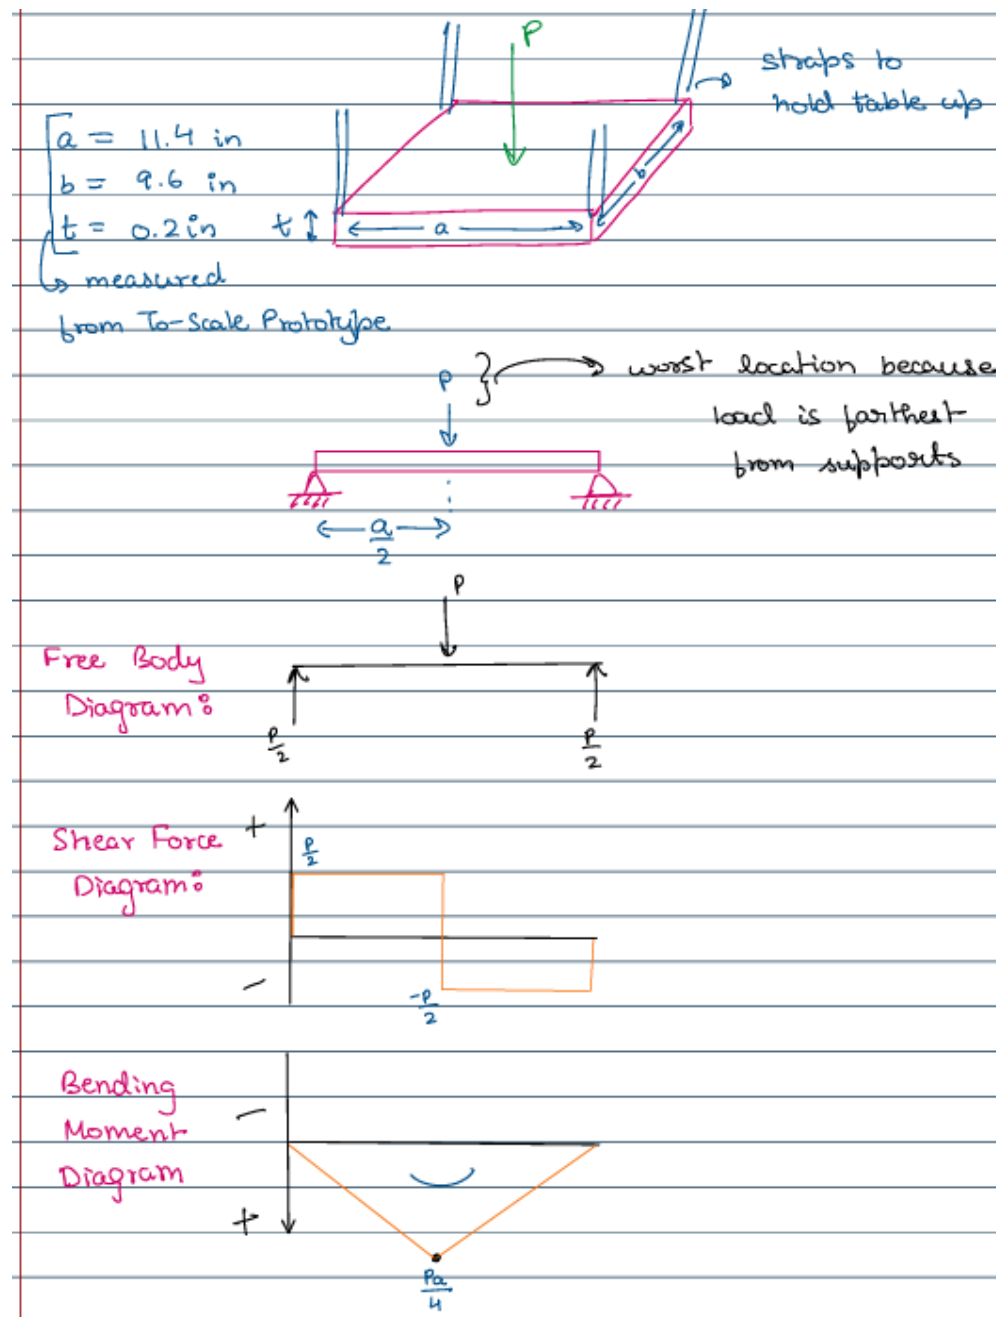 P
straps to
hold table up
a = 11.4 in
b = 9.6 in
t = 0.2 in
t
a
b
measured
from To-Scale Prototype
P
worst location because
load is farthest
from supports
a/2
P
Free Body
Diagram:
P/2
P/2
+
Shear Force
P/2
Diagram:
-
-P/2
Bending
-
Moment
Diagram
+
Pa/4